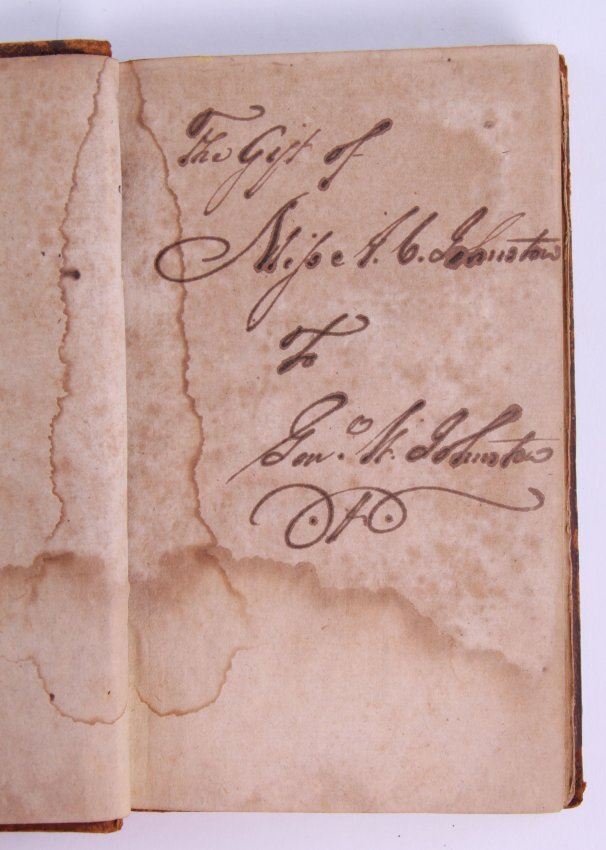 The Gift of
Miss A. C. Johnston
To
Geo. W. Johnston